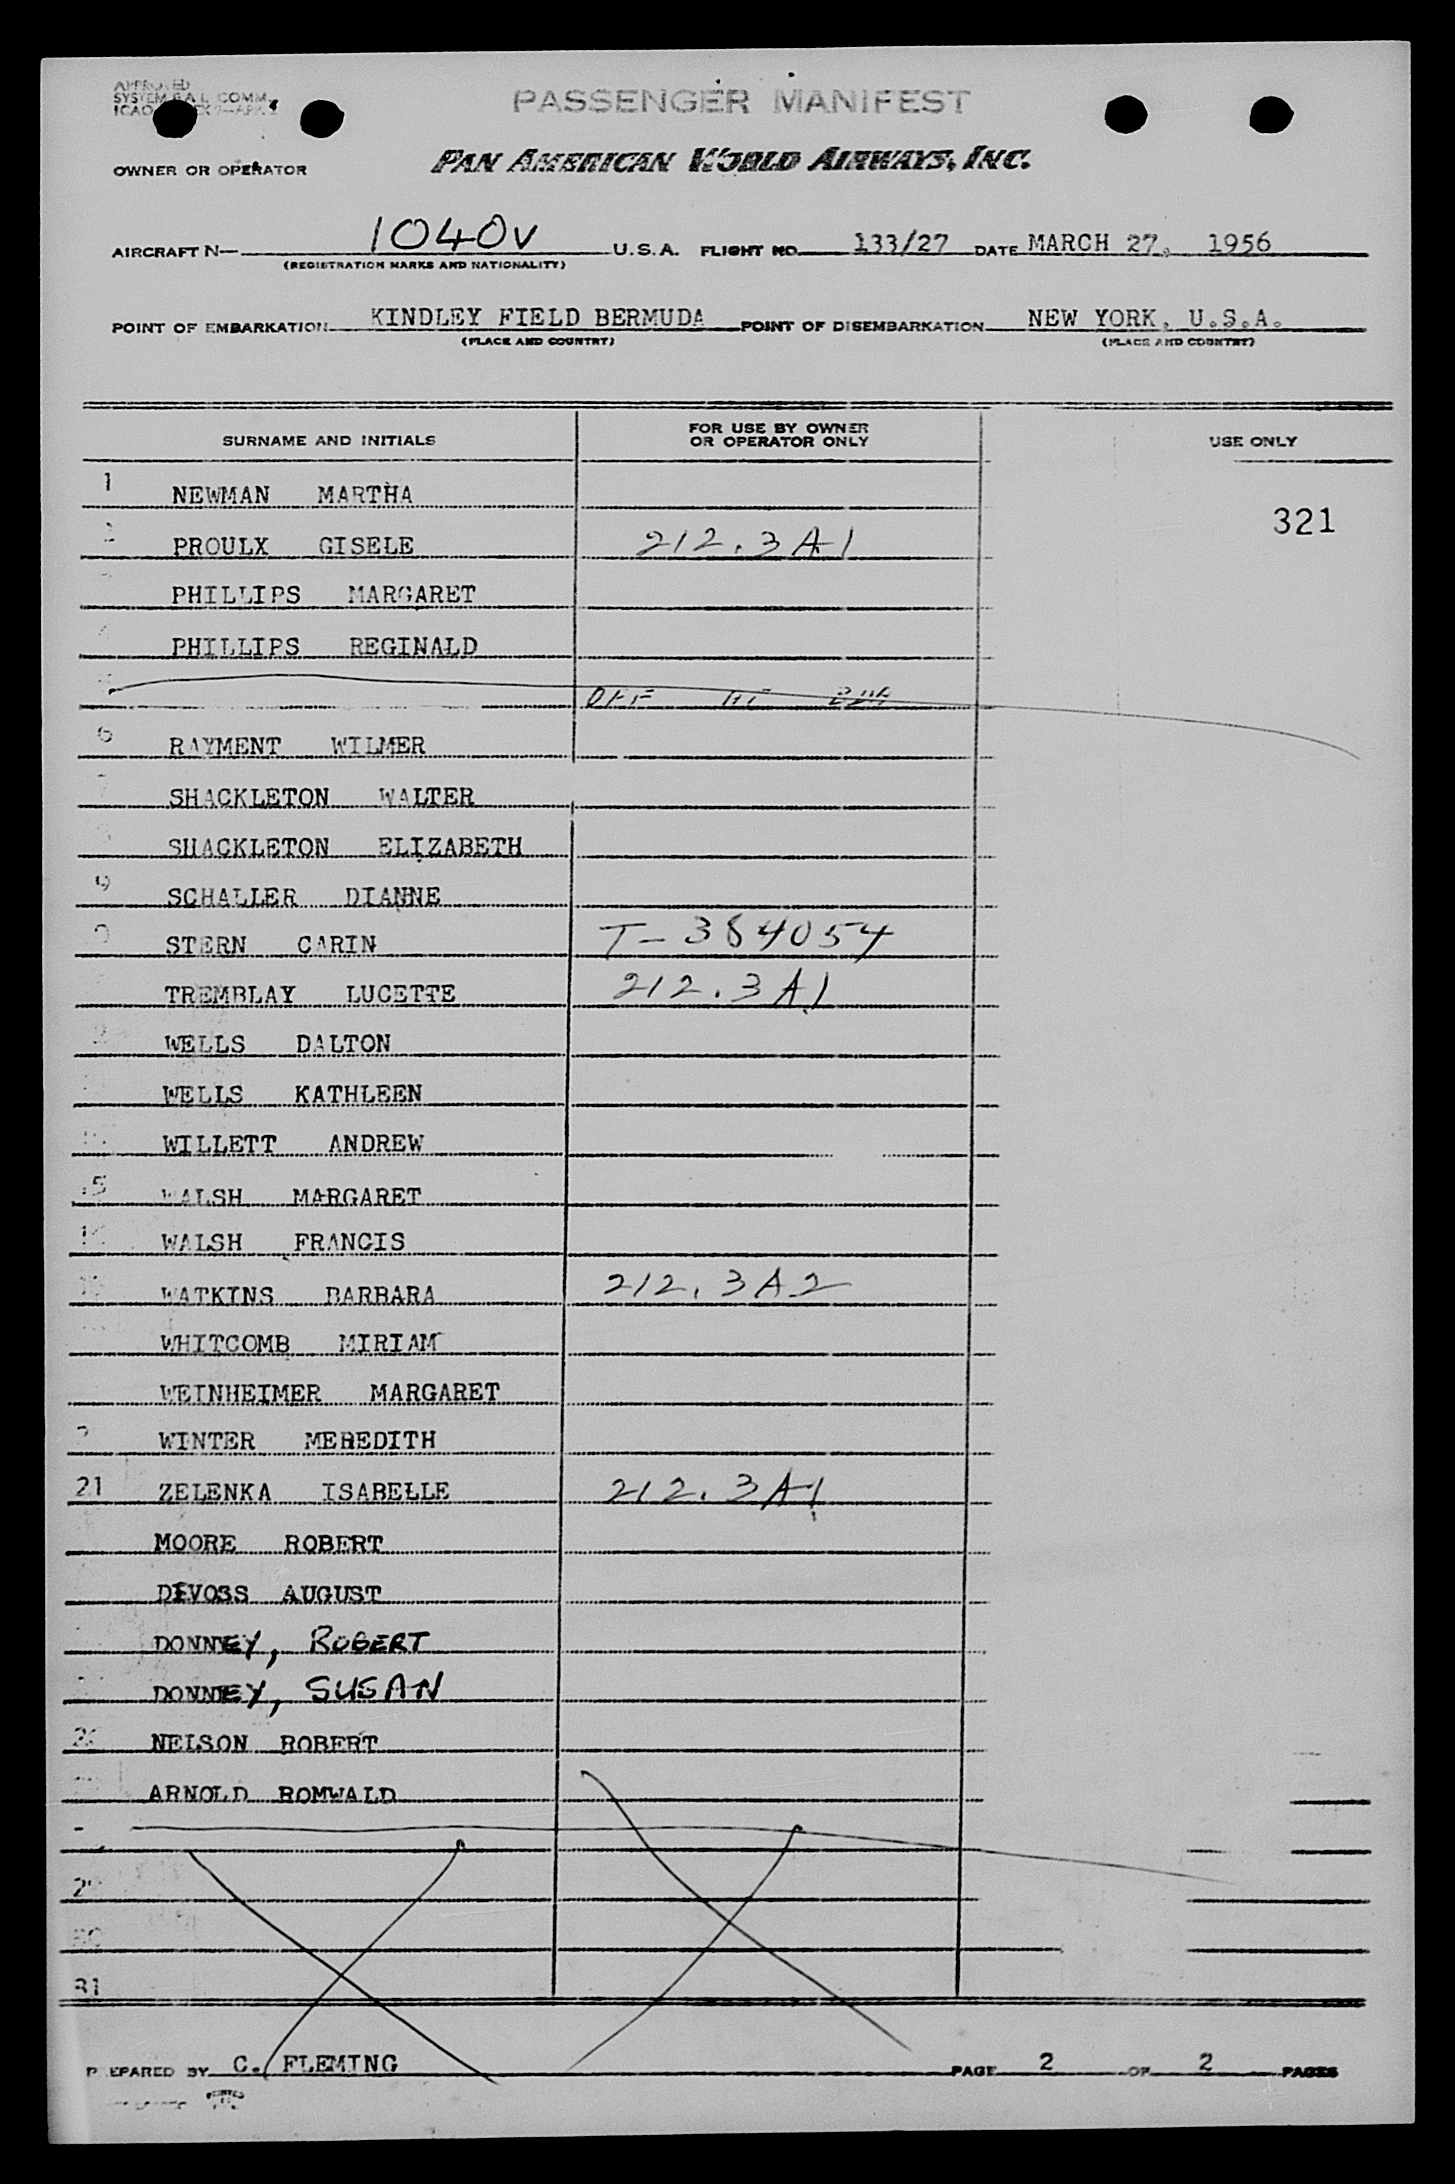 APPROVED
SYSTEM F.A.L. COMM.
ICAO
PASSENGER MANIFEST
OWNER OR OPERATOR PAN AMERICAN WORLD AIRWAYS, INC.
AIRCRAFT N— 1040V U.S.A. FLIGHT NO. 133/27 DATE MARCH 27, 1956
(REGISTRATION MARKS AND NATIONALITY)
POINT OF EMBARKATION KINDLEY FIELD BERMUDA POINT OF DISEMBARKATION NEW YORK, U.S.A.
(PLACE AND COUNTRY) (PLACE AND COUNTRY)
SURNAME AND INITIALS FOR USE BY OWNER OR OPERATOR ONLY USE ONLY
1 NEWMAN MARTHA
321
PROULX GISELE 212.3A1
PHILLIPS MARGARET
PHILLIPS REGINALD
OFF
6 RAYMENT WILMER
SHACKLETON WALTER
SHACKLETON ELIZABETH
9 SCHALLER DIANNE
STERN CARIN T-384054
TREMBLAY LUCETTE 212.3A1
WELLS DALTON
WELLS KATHLEEN
WILLETT ANDREW
15 WALSH MARGARET
WALSH FRANCIS
WATKINS BARBARA 212.3A2
WHITCOMB MIRIAM
WEINHEIMER MARGARET
WINTER MEREDITH
21 ZELENKA ISABELLE 212.3A1
MOORE ROBERT
DEVOSS AUGUST
DONNEY, ROBERT
DONNEY, SUSAN
NELSON ROBERT
ARNOLD ROMWALD
29
30
31
PREPARED BY C. FLEMING PAGE 2 OF 2 PAGES